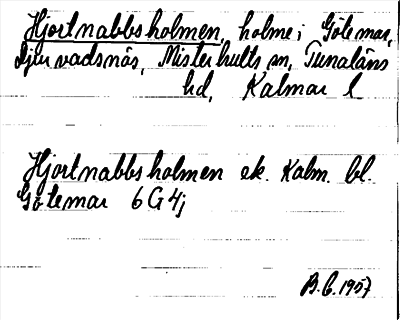 Hjortnabbsholmen, holme i Götemar,
Djupvadsnäs, Misterhults sn, Tunaläns
hd, Kalmar l
Hjortnabbsholmen ek. Kalm. bl.
Götemar 6G4j
B.C. 1957